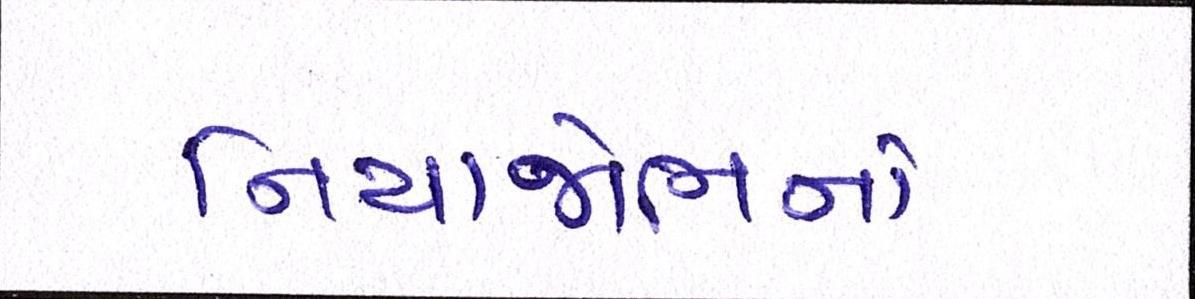 નિયાજોભનો